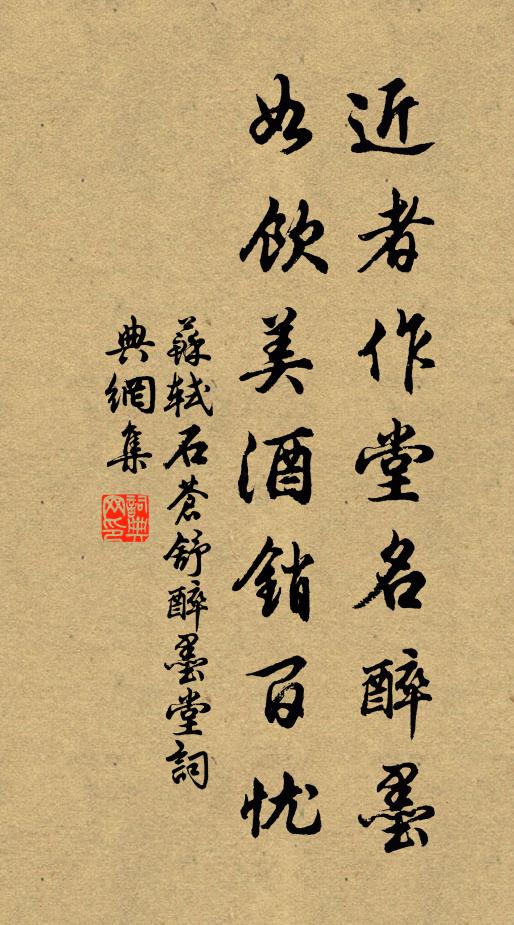 近者作堂名醉墨
如飲美酒銷百忧
蘇軾石蒼舒醉墨堂詞
典網集
詞典
网印